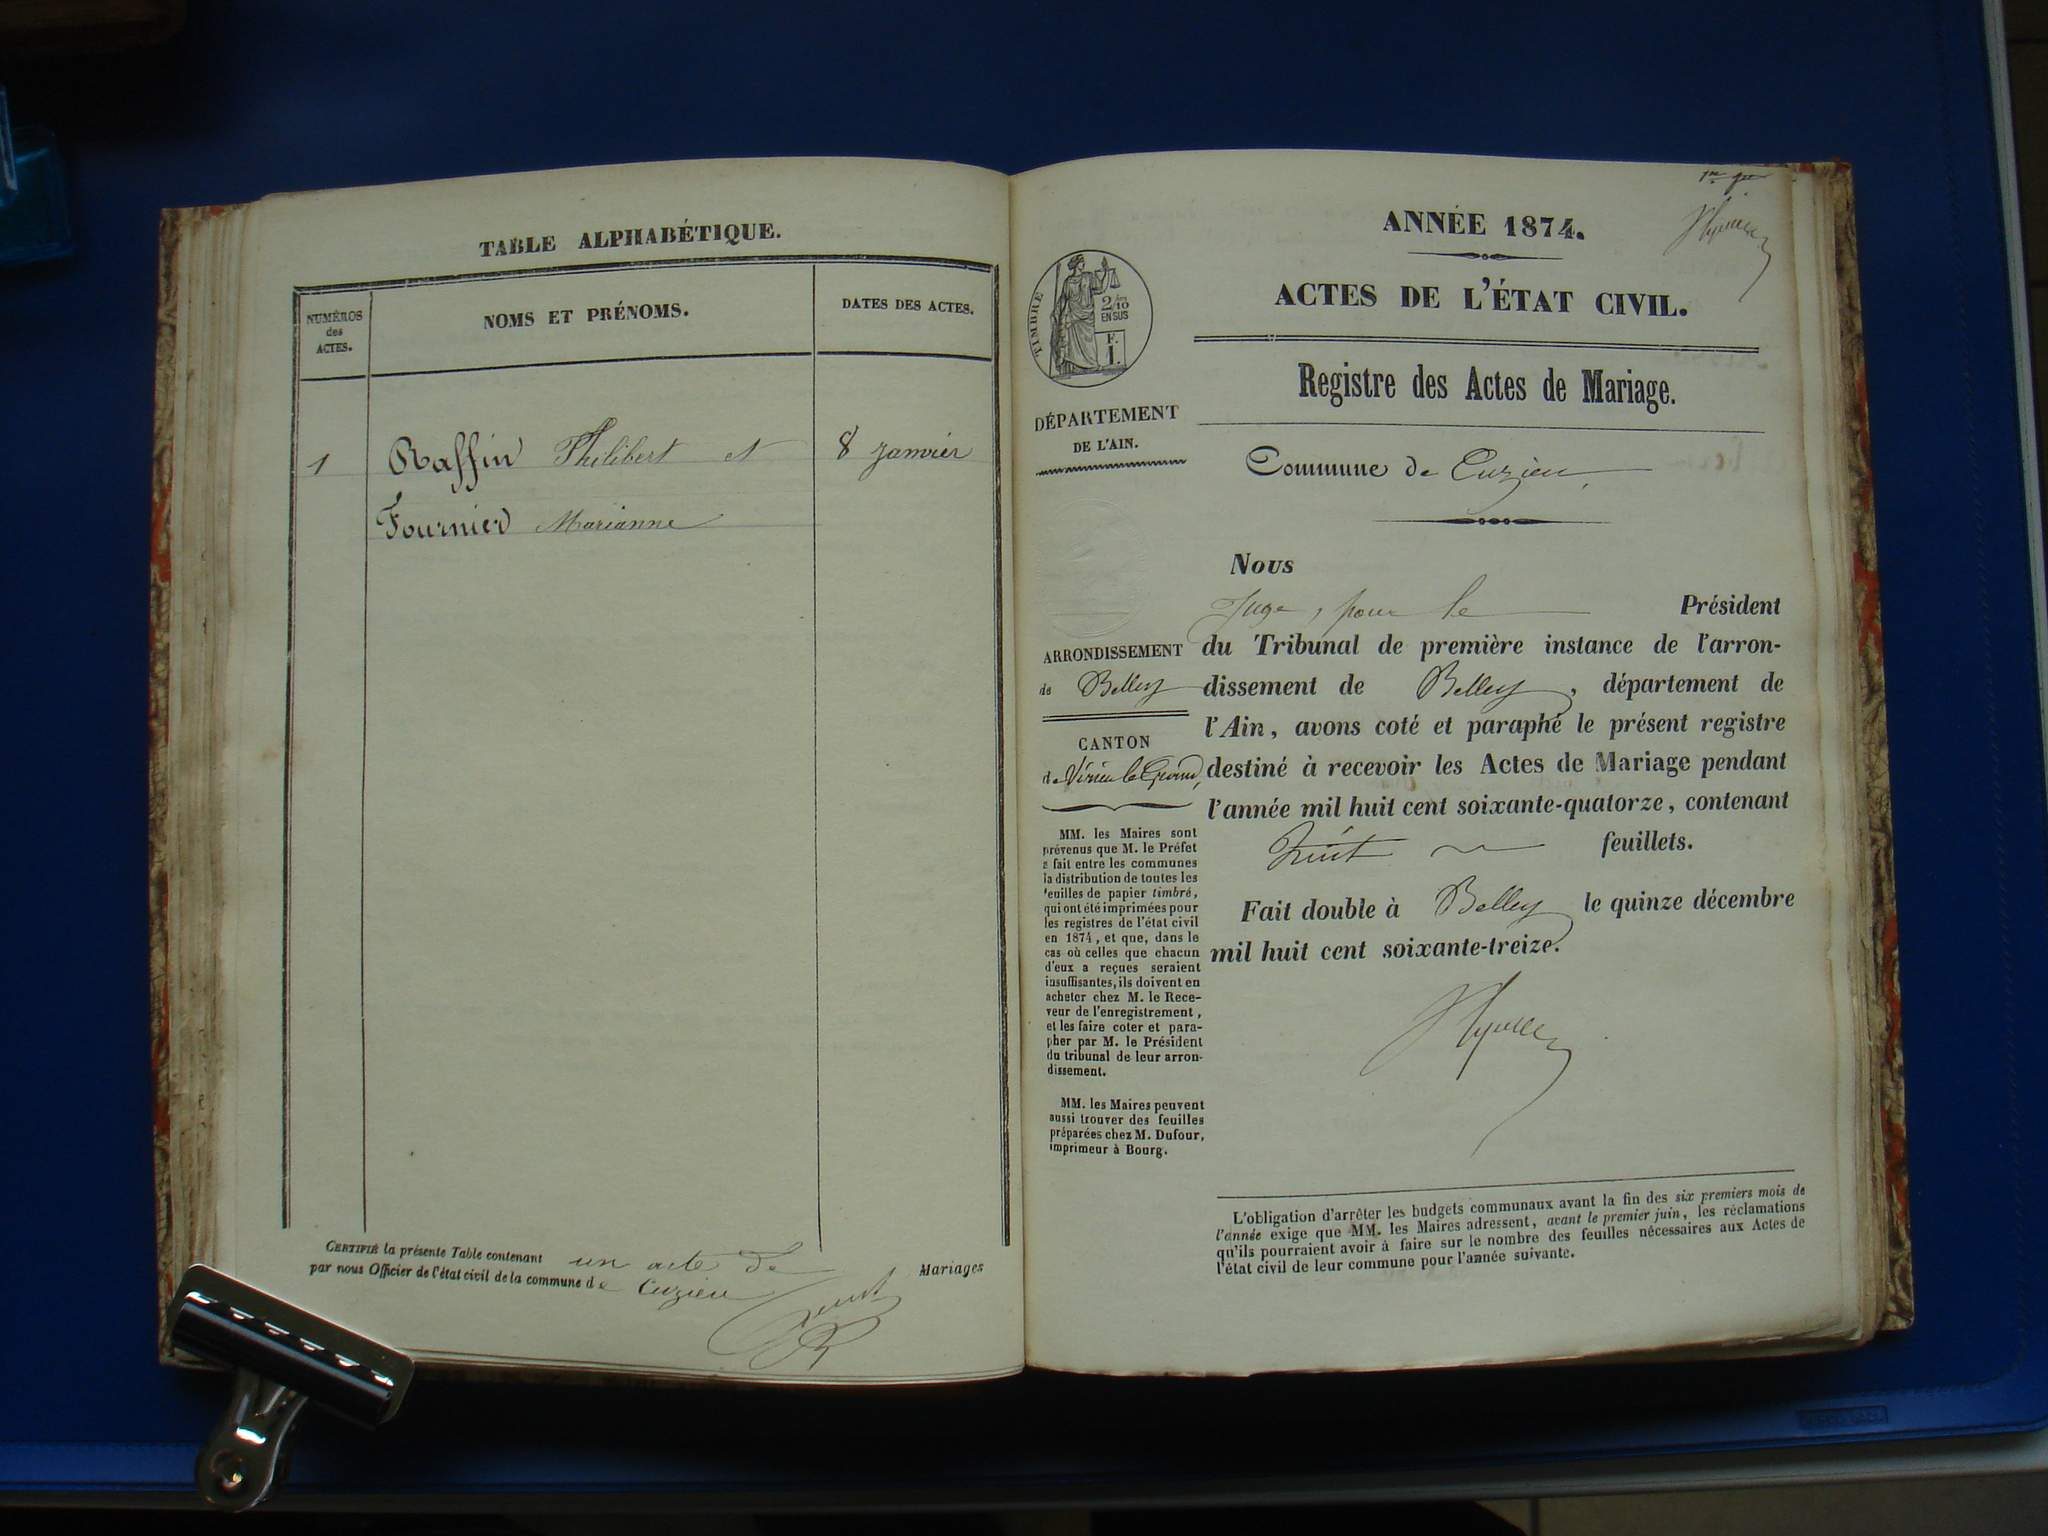 TABLE ALPHABÉTIQUE.
NUMÉROS
des
ACTES.
NOMS ET PRÉNOMS.
DATES DES ACTES.
1 Raffin Philibert et 8 janvier
Fournier Marianne
CERTIFIÉ la présente Table contenant un acte de Mariages
par nous Officier de l'état civil de la commune de Cuzieu
ANNÉE 1874.
ACTES DE L'ÉTAT CIVIL.
Registre des Actes de Mariage.
TIMBRE
2/10
EN SUS
F.
1.
DÉPARTEMENT
DE L'AIN.
Commune de Cuzieu
ARRONDISSEMENT
de Belley
CANTON
de Virieu le Grand,
MM. les Maires sont
prévenus que M. le Préfet
a fait entre les communes
la distribution de toutes les
feuilles de papier timbré,
qui ont été imprimées pour
les registres de l'état civil
en 1874, et que, dans le
cas où celles que chacun
d'eux a reçues seraient
insuffisantes, ils doivent en
acheter chez M. le Rece-
veur de l'enregistrement,
et les faire coter et para-
pher par M. le Président
du tribunal de leur arron-
dissement.
MM. les Maires peuvent
aussi trouver des feuilles
préparées chez M. Dufour,
imprimeur à Bourg.
Nous
Juge, pour le Président
du Tribunal de première instance de l'arron-
dissement de Belley, département de
l'Ain, avons coté et paraphé le présent registre
destiné à recevoir les Actes de Mariage pendant
l'année mil huit cent soixante-quatorze, contenant
huit feuillets.
Fait double à Belley le quinze décembre
mil huit cent soixante-treize.
L'obligation d'arrêter les budgets communaux avant la fin des six premiers mois de
l'année exige que MM. les Maires adressent, avant le premier juin, les réclamations
qu'ils pourraient avoir à faire sur le nombre des feuilles nécessaires aux Actes de
l'état civil de leur commune pour l'année suivante.